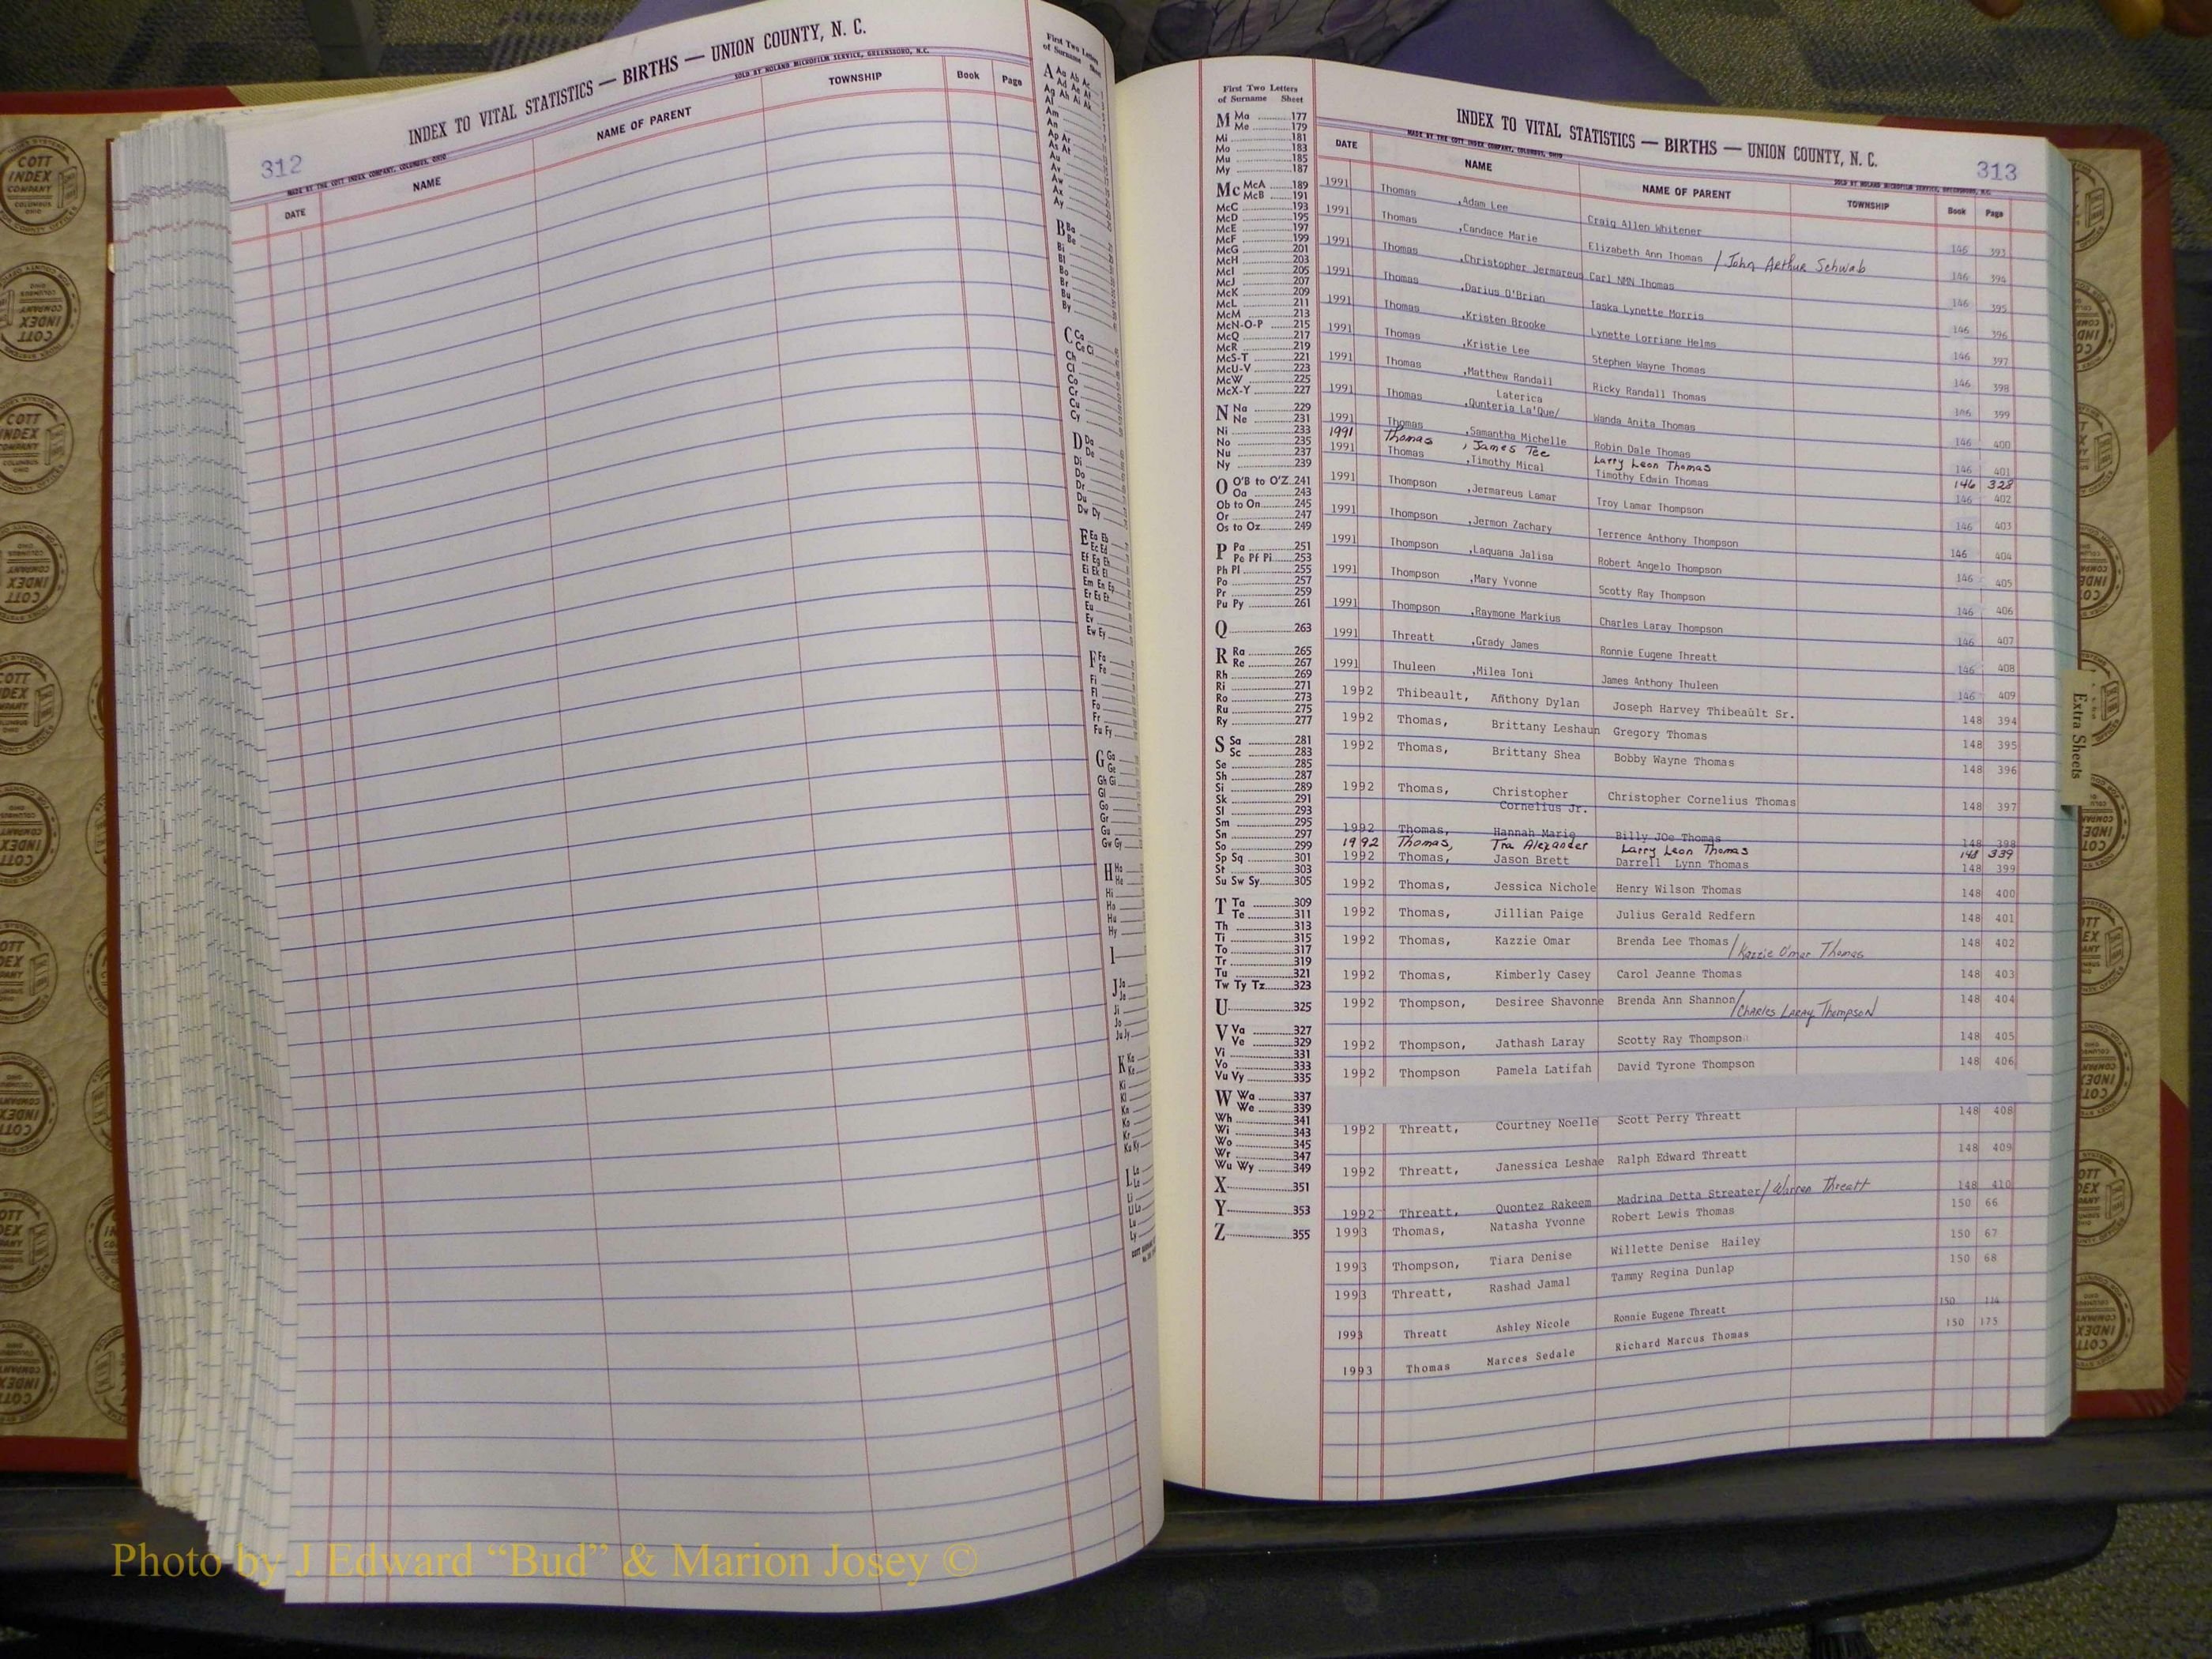 312
INDEX TO VITAL STATISTICS — BIRTHS — UNION COUNTY, N. C.
MADE BY THE COTT INDEX COMPANY, COLUMBUS, OHIO SOLD BY NOLAND MICROFILM SERVICE, GREENSBORO, N.C.
DATE NAME NAME OF PARENT TOWNSHIP Book Page
First Two Letters
of Surname Sheet
M Ma 177
Me 179
Mi 181
Mo 183
Mu 185
My 187
Mc McA 189
McB 191
McC 193
McD 195
McE 197
McF 199
McG 201
McH 203
McI 205
McJ 207
McK 209
McL 211
McM 213
McN-O-P 215
McQ 217
McR 219
McS-T 221
McU-V 223
McW 225
McX-Y 227
N Na 229
Ne 231
Ni 233
No 235
Nu 237
Ny 239
O O'B to O'Z 241
Oa 243
Ob to On 245
Or 247
Os to Oz 249
P Pa 251
Pe Pf Pi 253
Ph Pl 255
Po 257
Pr 259
Pu Py 261
Q 263
R Ra 265
Re 267
Rh 269
Ri 271
Ro 273
Ru 275
Ry 277
S Sa 281
Sc 283
Se 285
Sh 287
Si 289
Sk 291
Sl 293
Sm 295
Sn 297
So 299
Sp Sq 301
St 303
Su Sw Sy 305
T Ta 309
Te 311
Th 313
Ti 315
To 317
Tr 319
Tu 321
Tw Ty Tz 323
U 325
V Va 327
Ve 329
Vi 331
Vo 333
Vu Vy 335
W Wa 337
We 339
Wh 341
Wi 343
Wo 345
Wr 347
Wu Wy 349
X 351
Y 353
Z 355
INDEX TO VITAL STATISTICS — BIRTHS — UNION COUNTY, N. C.
313
MADE BY THE COTT INDEX COMPANY, COLUMBUS, OHIO SOLD BY NOLAND MICROFILM SERVICE, GREENSBORO, N.C.
DATE NAME NAME OF PARENT TOWNSHIP Book Page
1991 Thomas ,Adam Lee Craig Allen Whitener 146 393
1991 Thomas ,Candace Marie Elizabeth Ann Thomas / John Arthur Schwab 146 394
1991 Thomas ,Christopher Jermareus Carl NMN Thomas 146 395
1991 Thomas ,Darius O'Brian Taska Lynette Morris 146 396
1991 Thomas ,Kristen Brooke Lynette Lorriane Helms 146 397
1991 Thomas ,Kristie Lee Stephen Wayne Thomas 146 398
1991 Thomas ,Matthew Randall Ricky Randall Thomas 146 399
Laterica
1991 Thomas ,Qunteria La'Que/ Wanda Anita Thomas 146 400
1991 Thomas ,Samantha Michelle Robin Dale Thomas 146 401
1991 Thomas , James Tee Larry Leon Thomas 146 328
1991 Thomas ,Timothy Mical Timothy Edwin Thomas 146 402
1991 Thompson ,Jermareus Lamar Troy Lamar Thompson 146 403
1991 Thompson ,Jermon Zachary Terrence Anthony Thompson 146 404
1991 Thompson ,Laquana Jalisa Robert Angelo Thompson 146 405
1991 Thompson ,Mary Yvonne Scotty Ray Thompson 146 406
1991 Thompson ,Raymone Markius Charles Laray Thompson 146 407
1991 Threatt ,Grady James Ronnie Eugene Threatt 146 408
1991 Thuleen ,Milea Toni James Anthony Thuleen 146 409
1992 Thibeault, Anthony Dylan Joseph Harvey Thibeault Sr. 148 394
1992 Thomas, Brittany Leshaun Gregory Thomas 148 395
1992 Thomas, Brittany Shea Bobby Wayne Thomas 148 396
1992 Thomas, Christopher Christopher Cornelius Thomas 148 397
Cornelius Jr.
1992 Thomas, Hannah Marie Billy JOe Thomas 148 398
1992 Thomas, Tra Alexander Larry Leon Thomas 148 339
1992 Thomas, Jason Brett Darrell Lynn Thomas 148 399
1992 Thomas, Jessica Nichole Henry Wilson Thomas 148 400
1992 Thomas, Jillian Paige Julius Gerald Redfern 148 401
1992 Thomas, Kazzie Omar Brenda Lee Thomas / Kazzie Omar Thomas 148 402
1992 Thomas, Kimberly Casey Carol Jeanne Thomas 148 403
1992 Thompson, Desiree Shavonne Brenda Ann Shannon / Charles Laray Thompson 148 404
1992 Thompson, Jathash Laray Scotty Ray Thompson 148 405
1992 Thompson Pamela Latifah David Tyrone Thompson 148 406
1992 Threatt, Courtney Noelle Scott Perry Threatt 148 408
1992 Threatt, Janessica Leshae Ralph Edward Threatt 148 409
1992 Threatt, Quontez Rakeem Madrina Detta Streater / Warren Threatt 148 410
1993 Thomas, Natasha Yvonne Robert Lewis Thomas 150 66
1993 Thompson, Tiara Denise Willette Denise Hailey 150 67
1993 Threatt, Rashad Jamal Tammy Regina Dunlap 150 68
1993 Threatt Ashley Nicole Ronnie Eugene Threatt 150 114
1993 Thomas Marces Sedale Richard Marcus Thomas 150 175
Extra Sheets
Photo by J Edward “Bud” & Marion Josey ©